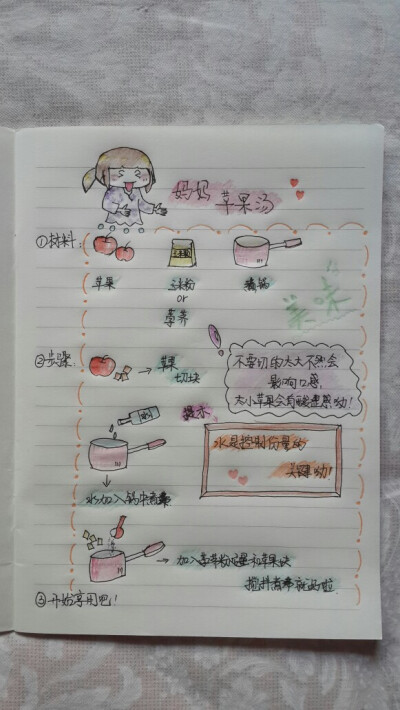 妈妈苹果汤
①材料:
苹果
冰粉
or
营养
汤锅
美味
②步骤:
苹果
切块
不要切的太大不然会
影响口感,
太小苹果会有酸涩感哟!
提示
水是控制份量的
关键哟!
水加入锅中煮沸
加入营养粉
和苹果块
搅拌煮沸就好啦
③开始享用吧!